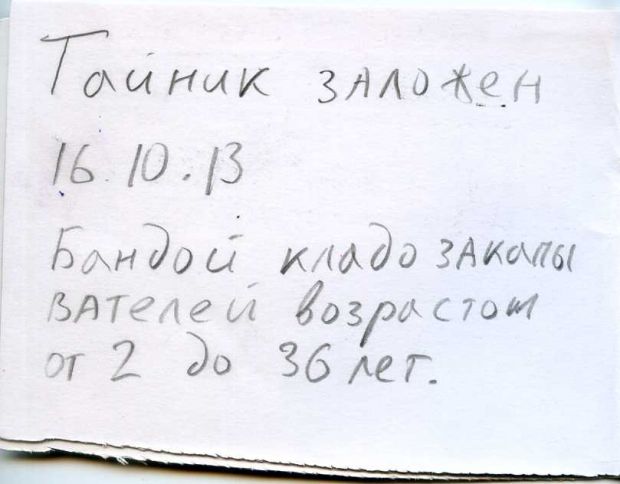 Тайник заложен
16.10.13
Бандой кладо закапы
вателей возрастом
от 2 до 36 лет.